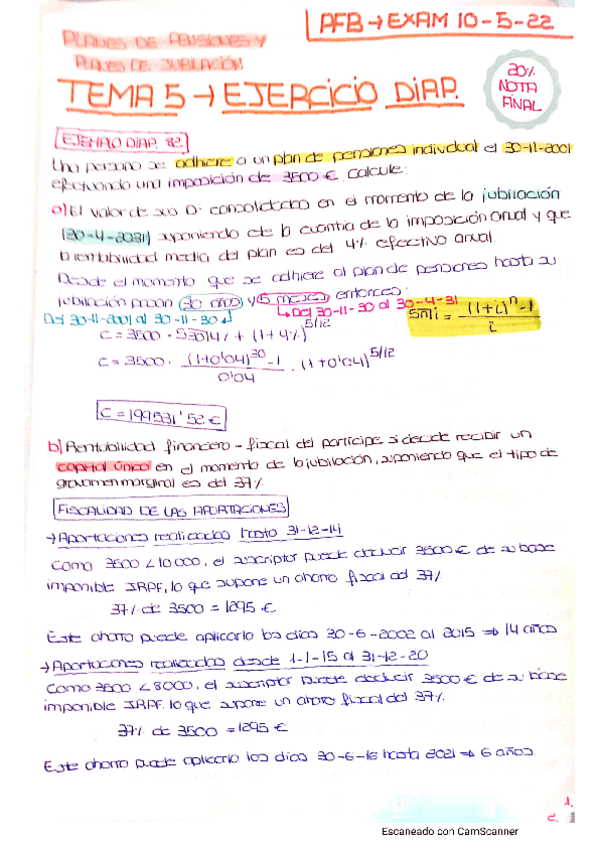 PFB → EXAM 10-5-22
PLANES DE PENSIONES Y
PLANES DE JUBILACIÓN
TEMA 5 → EJERCICIO DIAP.
20%
NOTA
FINAL
EJEMPLO DIAP. 82
Una persona se adhiere a un plan de pensiones individual el 30-11-2001
efectuando una imposición de 3500 €. Calcule:
a) El valor de sus D. consolidados en el momento de la jubilación
(30-4-2031) suponiendo cte la cuantía de la imposición anual y que
la rentabilidad media del plan es del 4% efectivo anual.
Desde el momento que se adhiere al plan de pensiones hasta su
jubilación pasan 30 años y 5 meses, entonces:
Del 30-11-2001 al 30-11-30
↳ Del 30-11-30 al 30-4-31
Sn|i = (1+i)^n - 1 / i
C = 3500 · S30|4% + (1+4%)^5/12
C = 3500 · (1+0'04)^30 - 1 / 0'04 · (1+0'04)^5/12
C = 199531'52 €
b) Rentabilidad financiero-fiscal del partícipe si decide recibir un
capital único en el momento de la jubilación, suponiendo que el tipo de
gravamen marginal es del 37%.
FISCALIDAD DE LAS APORTACIONES
→ Aportaciones realizadas hasta 31-12-14
Como 3500 < 10000, el suscriptor puede deducir 3500 € de su base
imponible IRPF, lo que supone un ahorro fiscal del 37%
37% de 3500 = 1295 €
Este ahorro puede aplicarlo los días 30-6-2002 al 2015 ⇒ 14 años
→ Aportaciones realizadas desde 1-1-15 al 31-12-20
Como 3500 < 8000, el suscriptor puede deducir 3500 € de su base
imponible IRPF, lo que supone un ahorro fiscal del 37%.
37% de 3500 = 1295 €
Este ahorro puede aplicarlo los días 30-6-16 hasta 2021 ⇒ 6 años.
1.
Escaneado con CamScanner